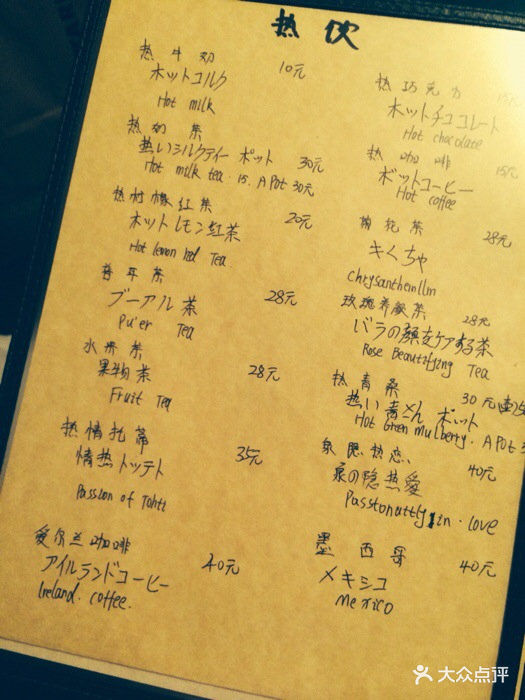 热饮
热牛奶 10元
ホットコルク
Hot milk
热奶茶
热いシルクティー ポット 30元
Hot milk tea. 15. A Pot 30元
热柠檬红茶 20元
ホットレモン红茶
Hot lemon Red Tea
普耳茶 28元
プーアル茶
Pu'er Tea
水果茶 28元
果物茶
Fruit Tea
热情托蒂 35元
情热トッテト
Passion of Tahti
爱尔兰咖啡 40元
アイルランドコーヒー
Ireland. coffee.
热巧克力 15元
ホットチョコレート
Hot chocolate
热咖啡 15元
ボットコーヒー
Hot coffee
菊花茶 28元
キくちゃ
chrysanthemllm
玫瑰养颜茶 28元
バラの颜をケアする茶
Rose Beautifying Tea
热青桑 30元
热い青とん ポット
Hot Green mulberry. A Pot
泉隐热恋 40元
泉の隐热愛
Passtonattly in. love
墨西哥 40元
メキシコ
Mexico
大众点评